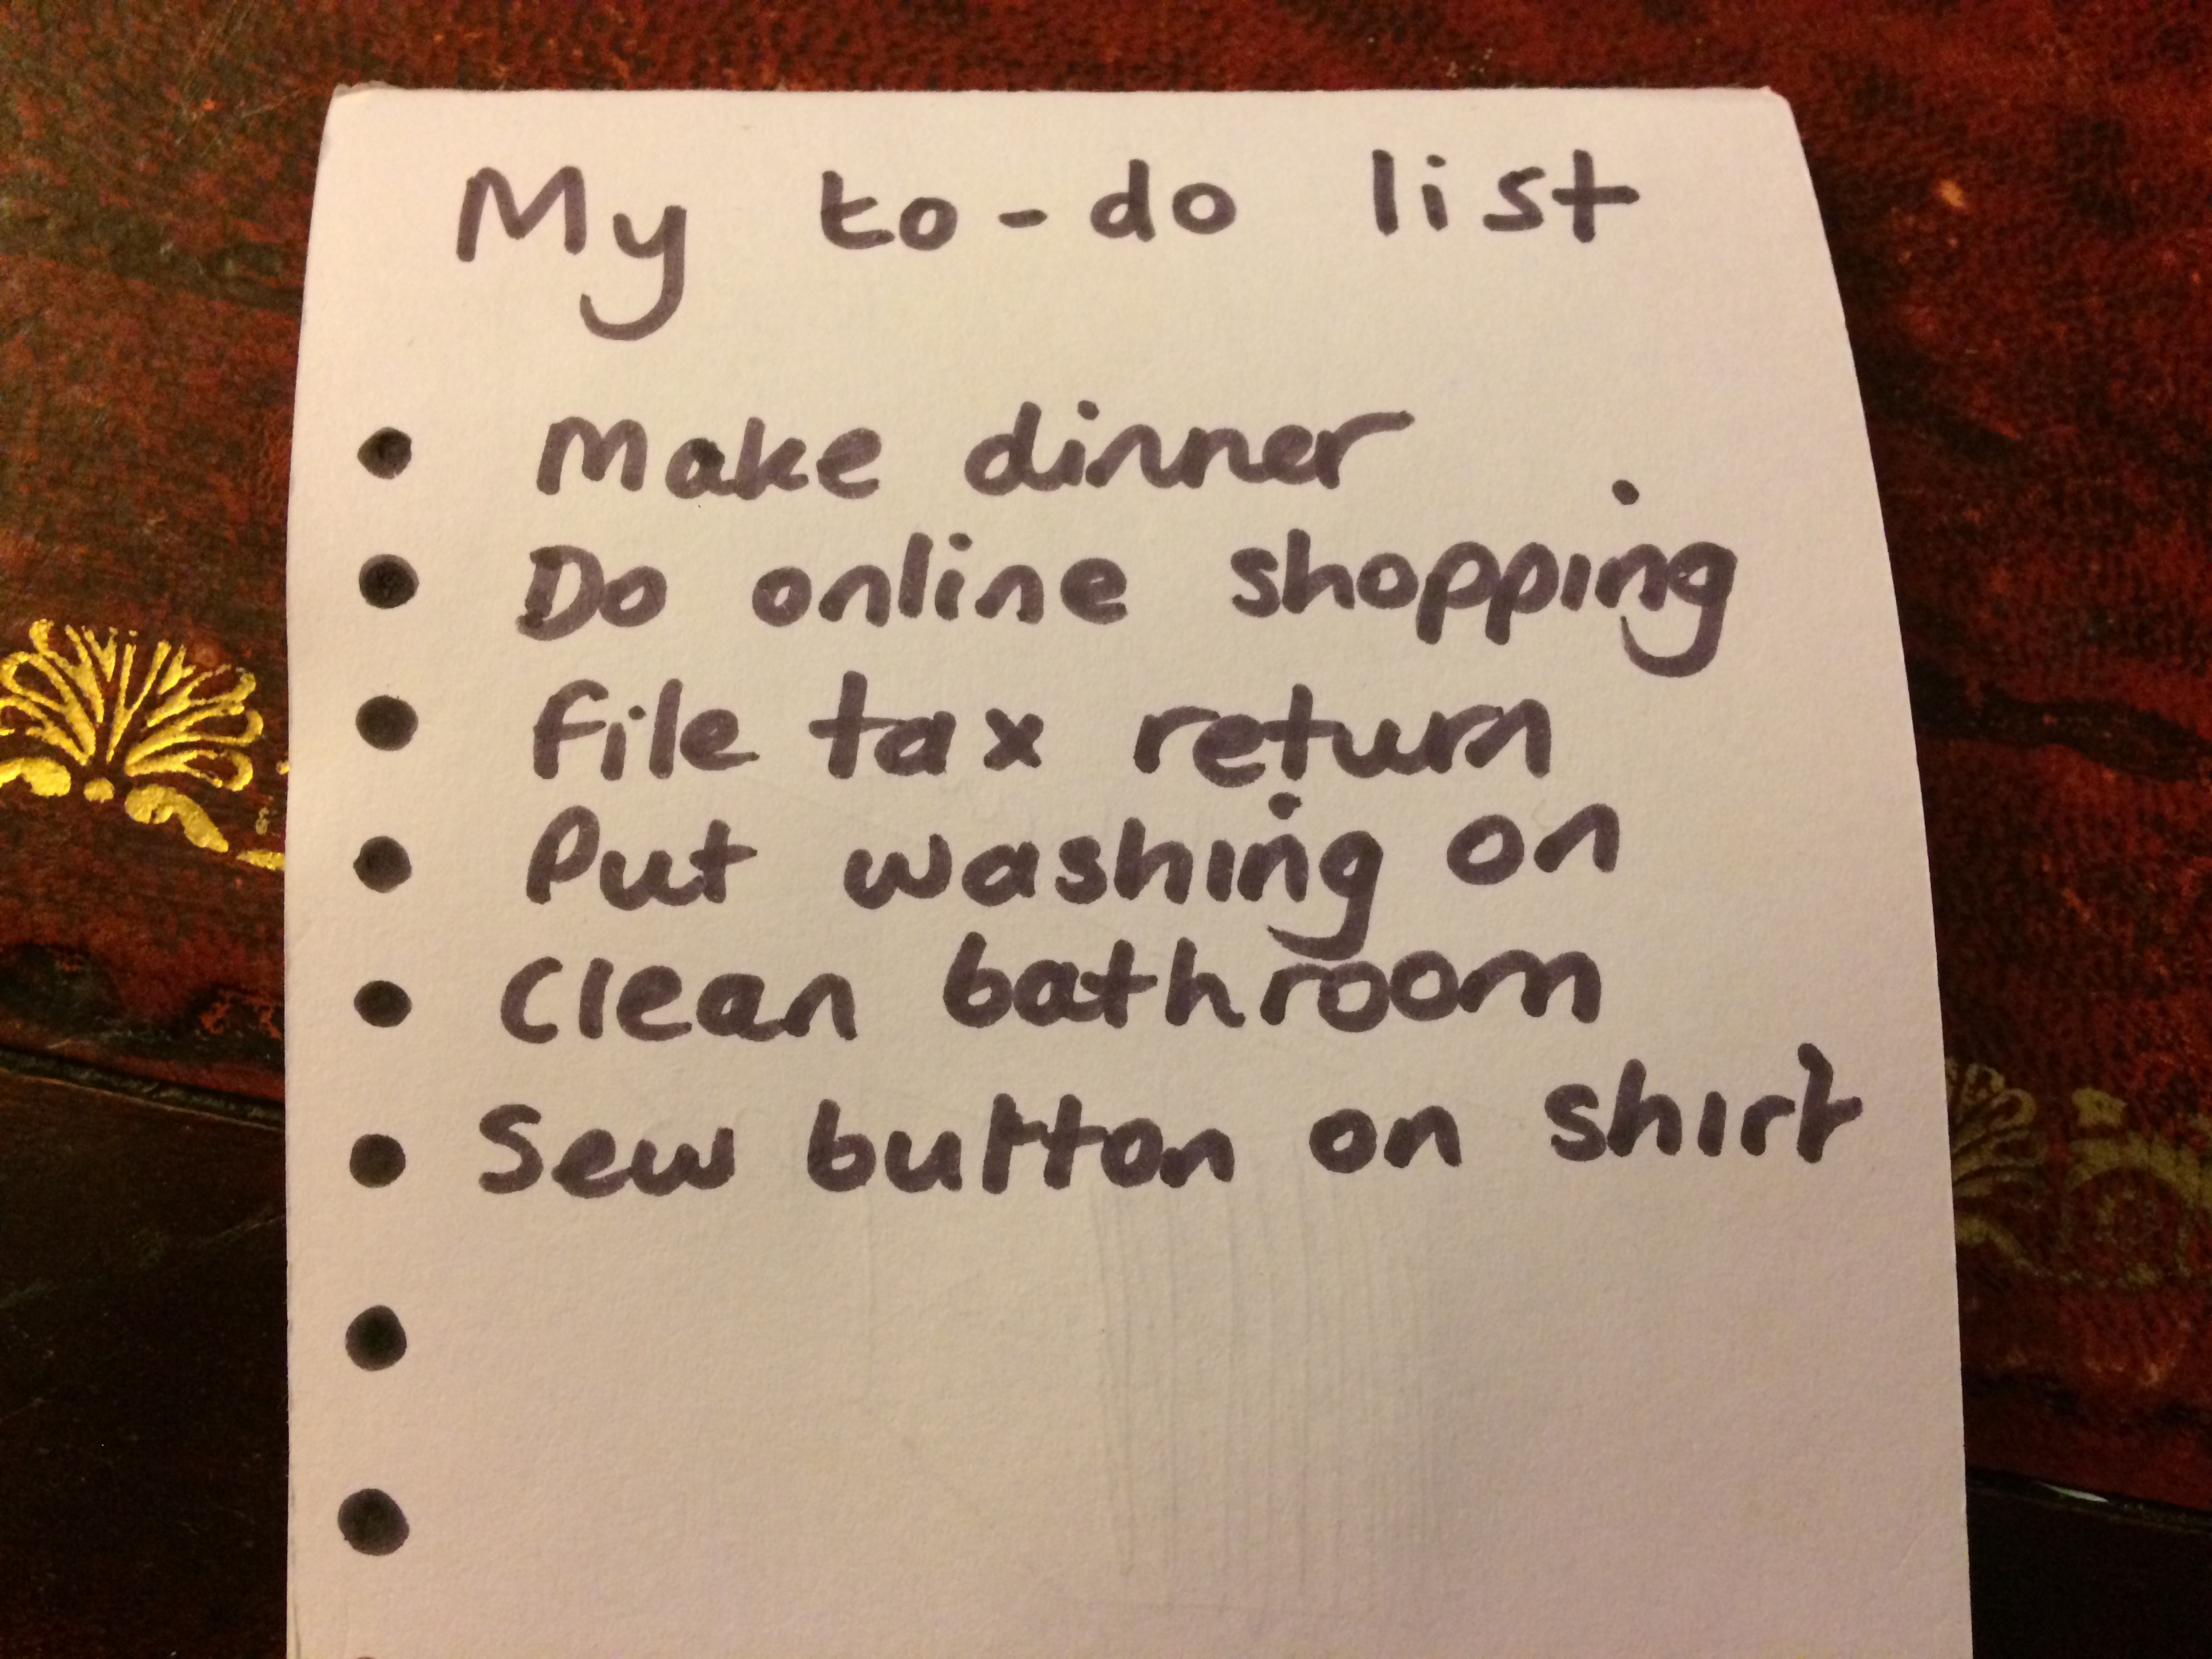 My to-do list
• Make dinner
• Do online shopping
• File tax return
• Put washing on
• Clean bathroom
• Sew button on shirt
•
•